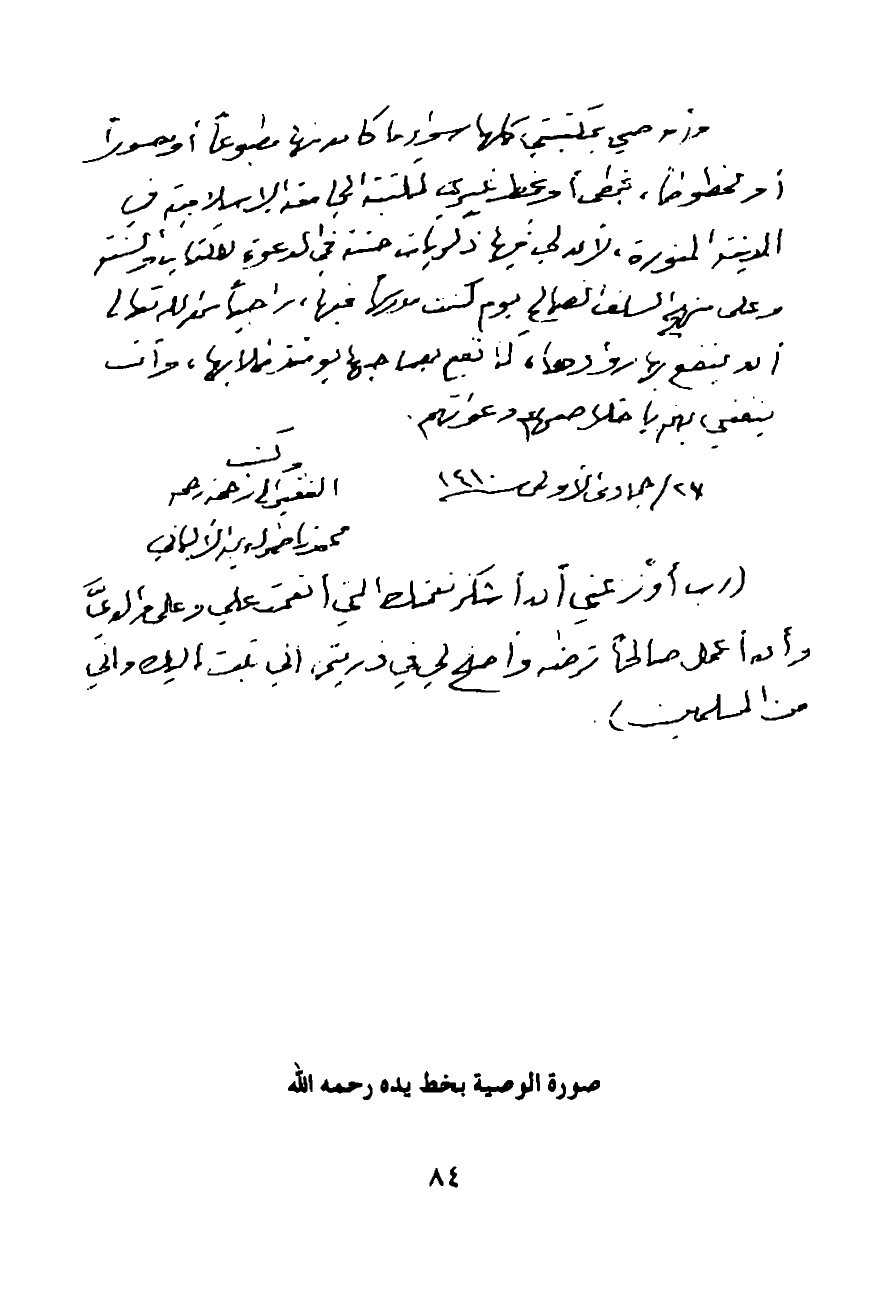 وأوصي بمكتبتي كلها سواء ما كان منها مطبوعاً أو مصوراً
أو مخطوطاً، بخطي أو بخط غيري لمكتبة الجامعة الإسلامية في
المدينة المنورة، لأن لي فيها ذكريات حسنة في الدعوة للكتاب والسنة
وعلى منهج السلف الصالح يوم كنت مدرساً فيها، راجياً من الله تعالى
أن ينفع بها روادها، كما نفع بصاحبها يومئذ طلابها، وأن
ينفعني بهم بإخلاصهم ودعواتهم.
وكتب
٢٧/جمادى الأولى ١٤١٠
الفقير إلى رحمة ربه
محمد ناصر الدين الألباني
(رب أوزعني أن أشكر نعمتك التي أنعمت علي وعلى والديَّ
وأن أعمل صالحاً ترضاه وأصلح لي في ذريتي إني تبت إليك وإني
من المسلمين).
صورة الوصية بخط يده رحمه الله
٨٤